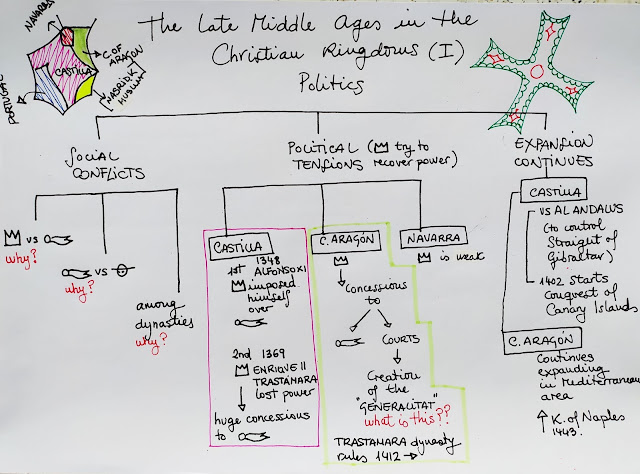 The Late Middle Ages in the
Christian Kingdoms (I)
Politics
NAVARRE
C. OF
ARAGON
CASTILLA
NASRID K
MUSLIM
PORTUGAL
SOCIAL
CONFLICTS
vs
why?
vs
why?
among
dynasties
why?
POLITICAL
TENSIONS
(try to
recover power)
CASTILLA
1st 1348
ALFONSO XI
imposed
himself
over
2nd 1369
ENRIQUE II
TRASTÁMARA
lost power
huge concessions
to
C. ARAGÓN
Concessions
to
COURTS
Creation
of the
"GENERALITAT"
what is this??
TRASTAMARA dynasty
rules 1412 →
NAVARRA
is weak
EXPANSION
CONTINUES
CASTILLA
VS AL ANDALUS
(to control
Straight of
Gibraltar)
1402 STARTS
Conquest of
Canary Islands
C. ARAGÓN
Continues
expanding
in Mediterranean
area
↑ K. of Naples
1443.